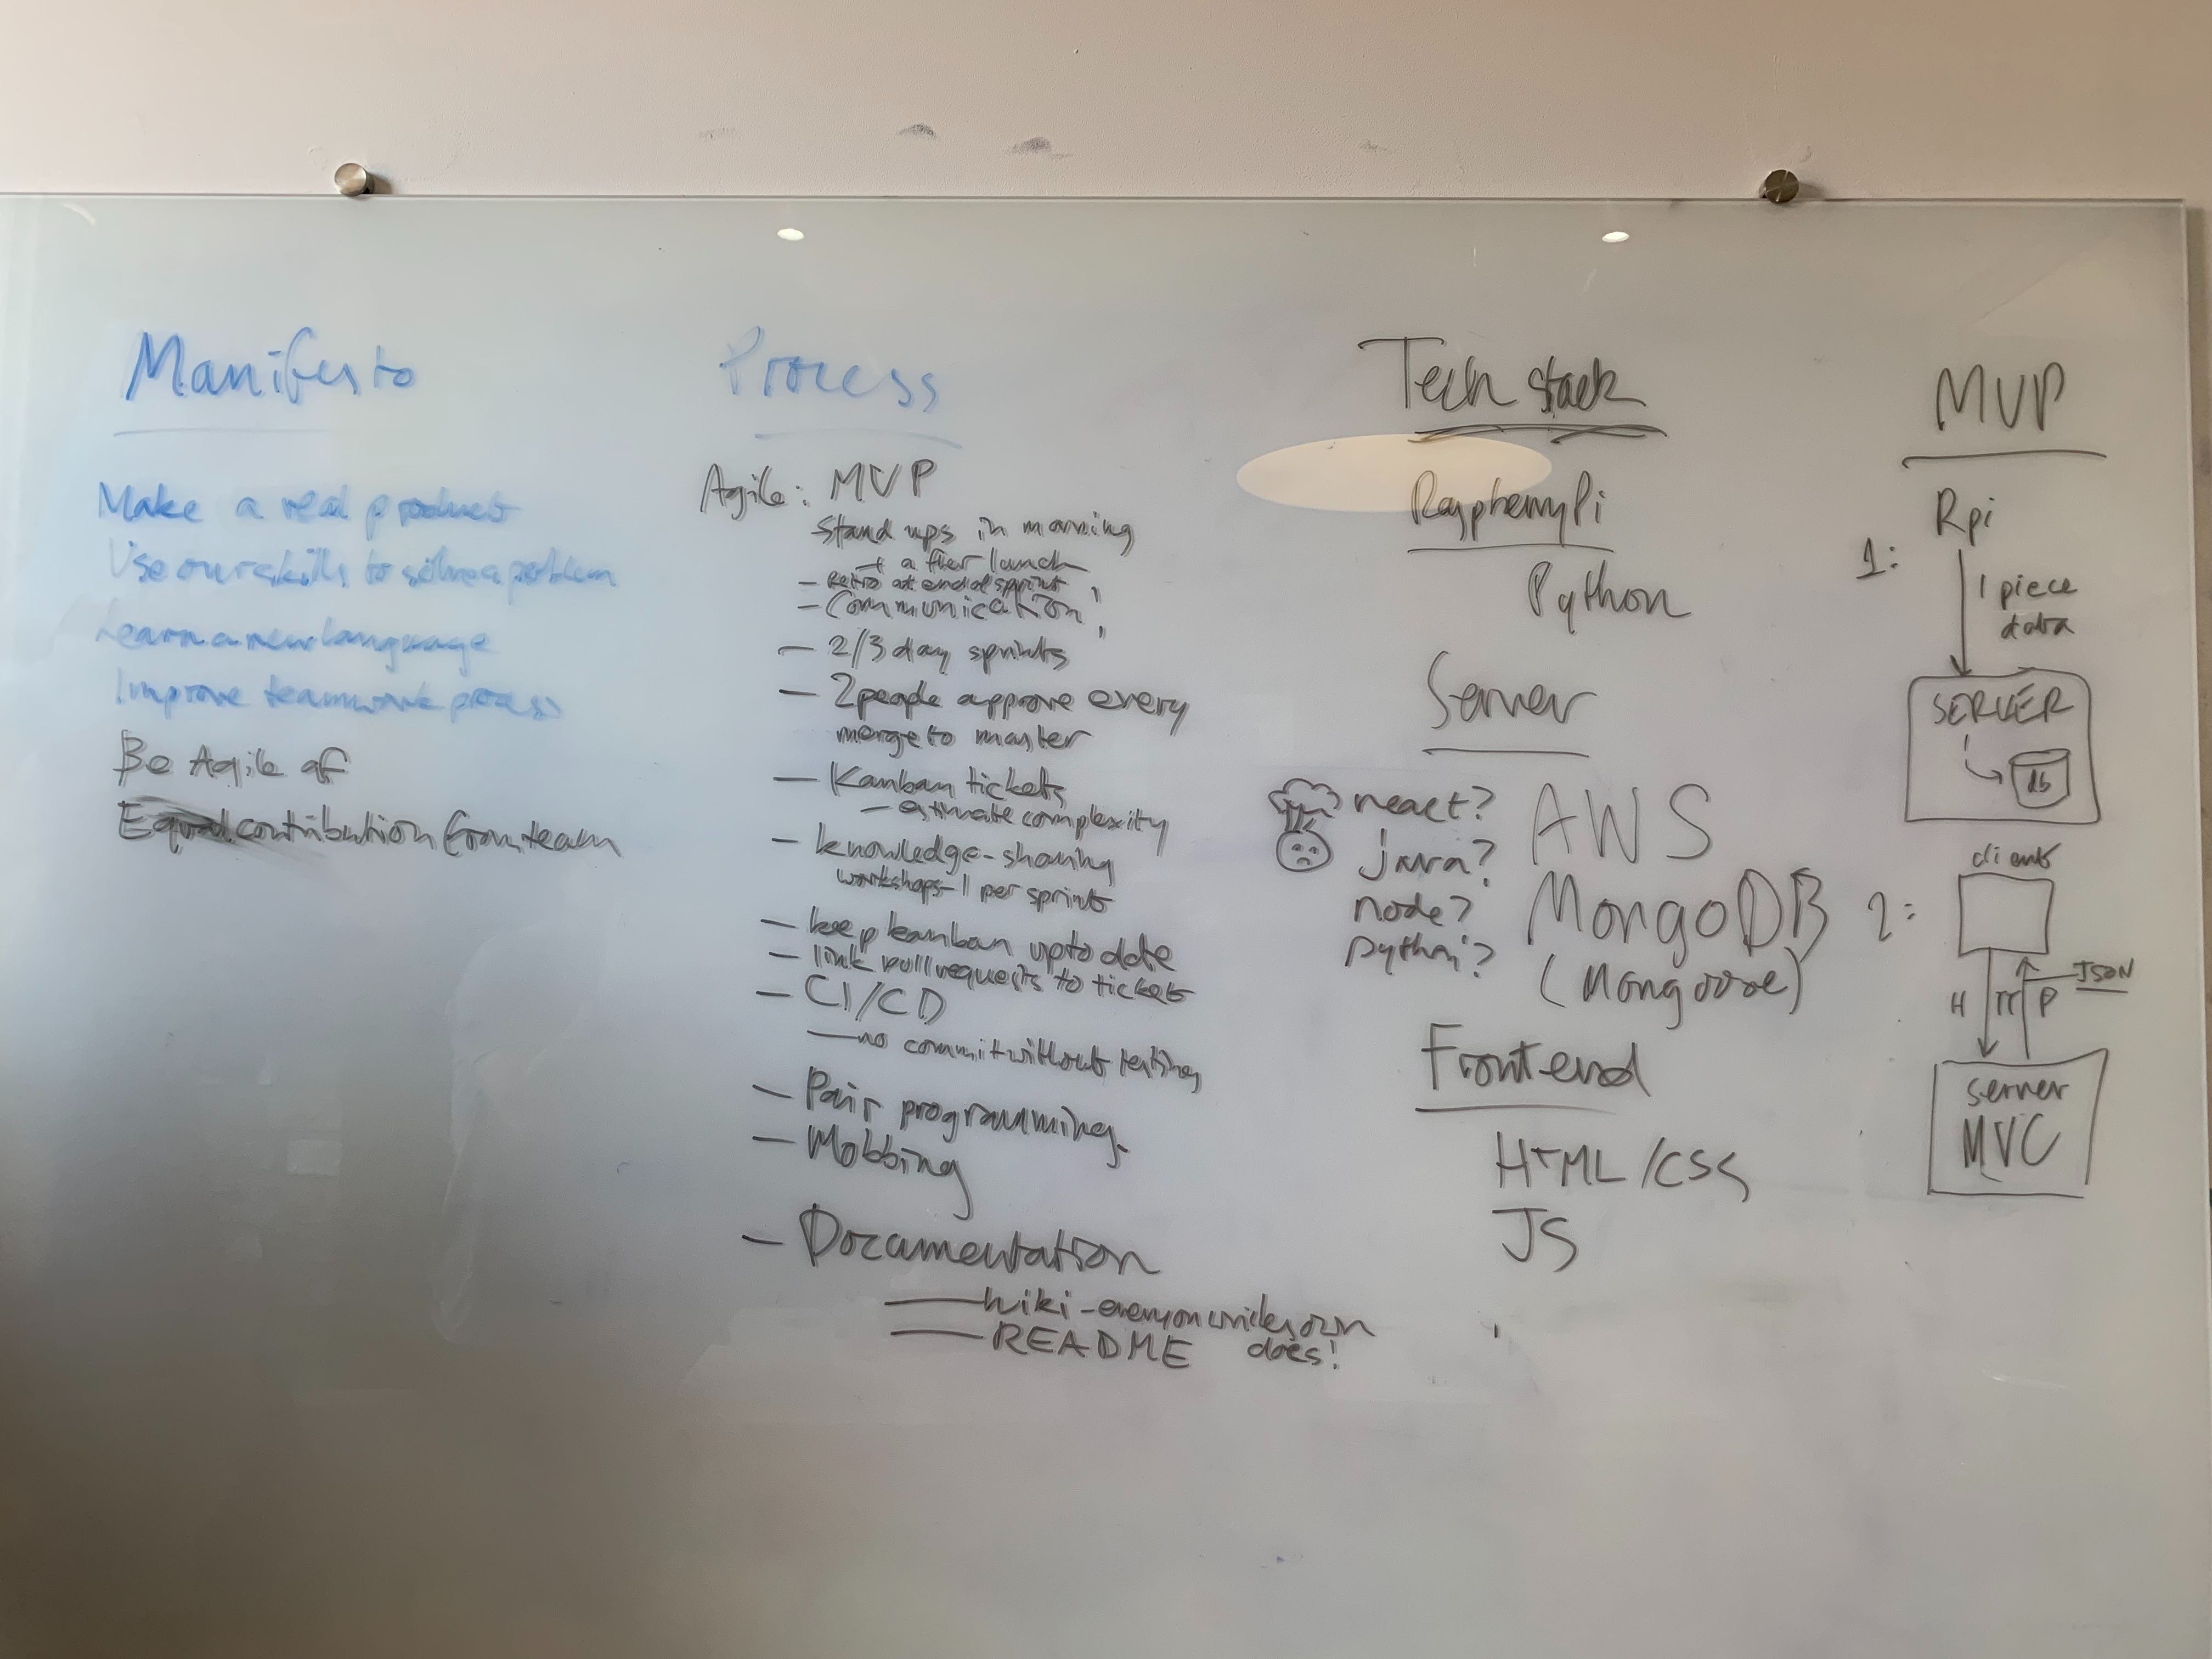 Manifesto
Make a real product
Use our skills to solve a problem
Learn a new language
Improve teamwork process
Be Agile af
Equal contribution from team
Process
Agile: MVP
Stand ups in morning
+ after lunch
- Retro at end of sprint
- Communication!
- 2/3 day sprints
- 2 people approve every
merge to master
- Kanban tickets
- estimate complexity
- knowledge-sharing
workshops - 1 per sprint
- keep kanban up to date
- link pull requests to tickets
- CI/CD
- no commit without testing
- Pair programming
- Mobbing
- Documentation
- Wiki - everyone writes own
does!
- README
Tech stack
RaspberryPi
Python
Server
react?
java?
node?
python?
AWS
MongoDB
(Mongoose)
Frontend
HTML/CSS
JS
MVP
1:
Rpi
1 piece
data
SERVER
db
2:
client
H TT P
JSON
server
MVC